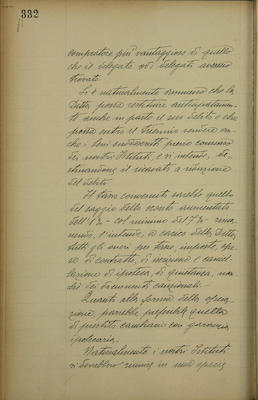 332
compratore più vantaggioso di quello
che il delegato od i delegati avessero
trovato.
Si è naturalmente convenuto che la
Ditta possa restituire anticipatamen-
te anche in parte il suo debito e che
possa entro il triennio vendere an-
che i beni previo consenso
dei nostri Istituti, e si intende, de-
stinandone il ricavato a riduzione
del debito.
Il tasso convenuto sarebbe quello
del saggio dello sconto aumentato
dell'1% - col minimo del 7% - rima-
nendo, s'intende, a carico della Ditta,
tutti gli oneri per tasse, imposte, spe-
se di contratto, di iscrizione e cancel-
lazione di ipoteca, di quietanza, non-
chè dei documenti cauzionali. -
Quanto alla forma della opera-
zione, parrebbe preferibile quella
di prestito cambiario con garanzia
ipotecaria.
Naturalmente i nostri Istituti
si dovrebbero riunire in una specie